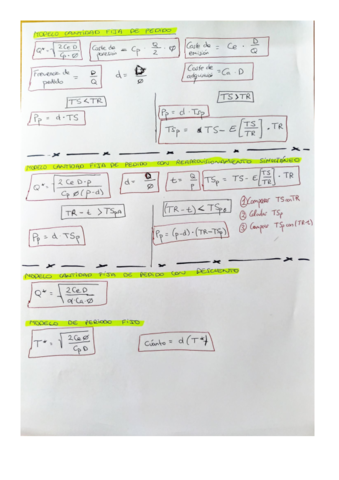 MODELO CANTIDAD FIJA DE PEDIDO
Q* = √(2 Ce D / Cp · Ø) Coste de posesión = Cp · Q/2 · Ø Coste de emisión = Ce · D/Q
Frecuencia de pedido = D/Q d = D/Ø Coste de adquisición = Ca · D
TS < TR TS > TR
Pp = d · TR Pp = d · TSp
TSp = TS - E[TS/TR] · TR
MODELO CANTIDAD FIJA DE PEDIDO CON REAPROVISIONAMIENTO SIMULTÁNEO
Q* = √(2 Ce D · p / Cp Ø (p-d)) d = D/Ø t = Q/p TSp = TS - E[TS/TR] · TR
TR - t > TSp (TR - t) < TSp
① Comparar TS con TR
② Calcular TSp
③ Comparar TSp con (TR-t)
Pp = d · TSp Pp = (p-d) · (TR - TSp)
MODELO CANTIDAD FIJA DE PEDIDO CON DESCUENTO
Q* = √(2 Ce D / α · Ca · Ø)
MODELO DE PERIODO FIJO
T* = √(2 Ce Ø / Cp D) Cuánto = d (T*)